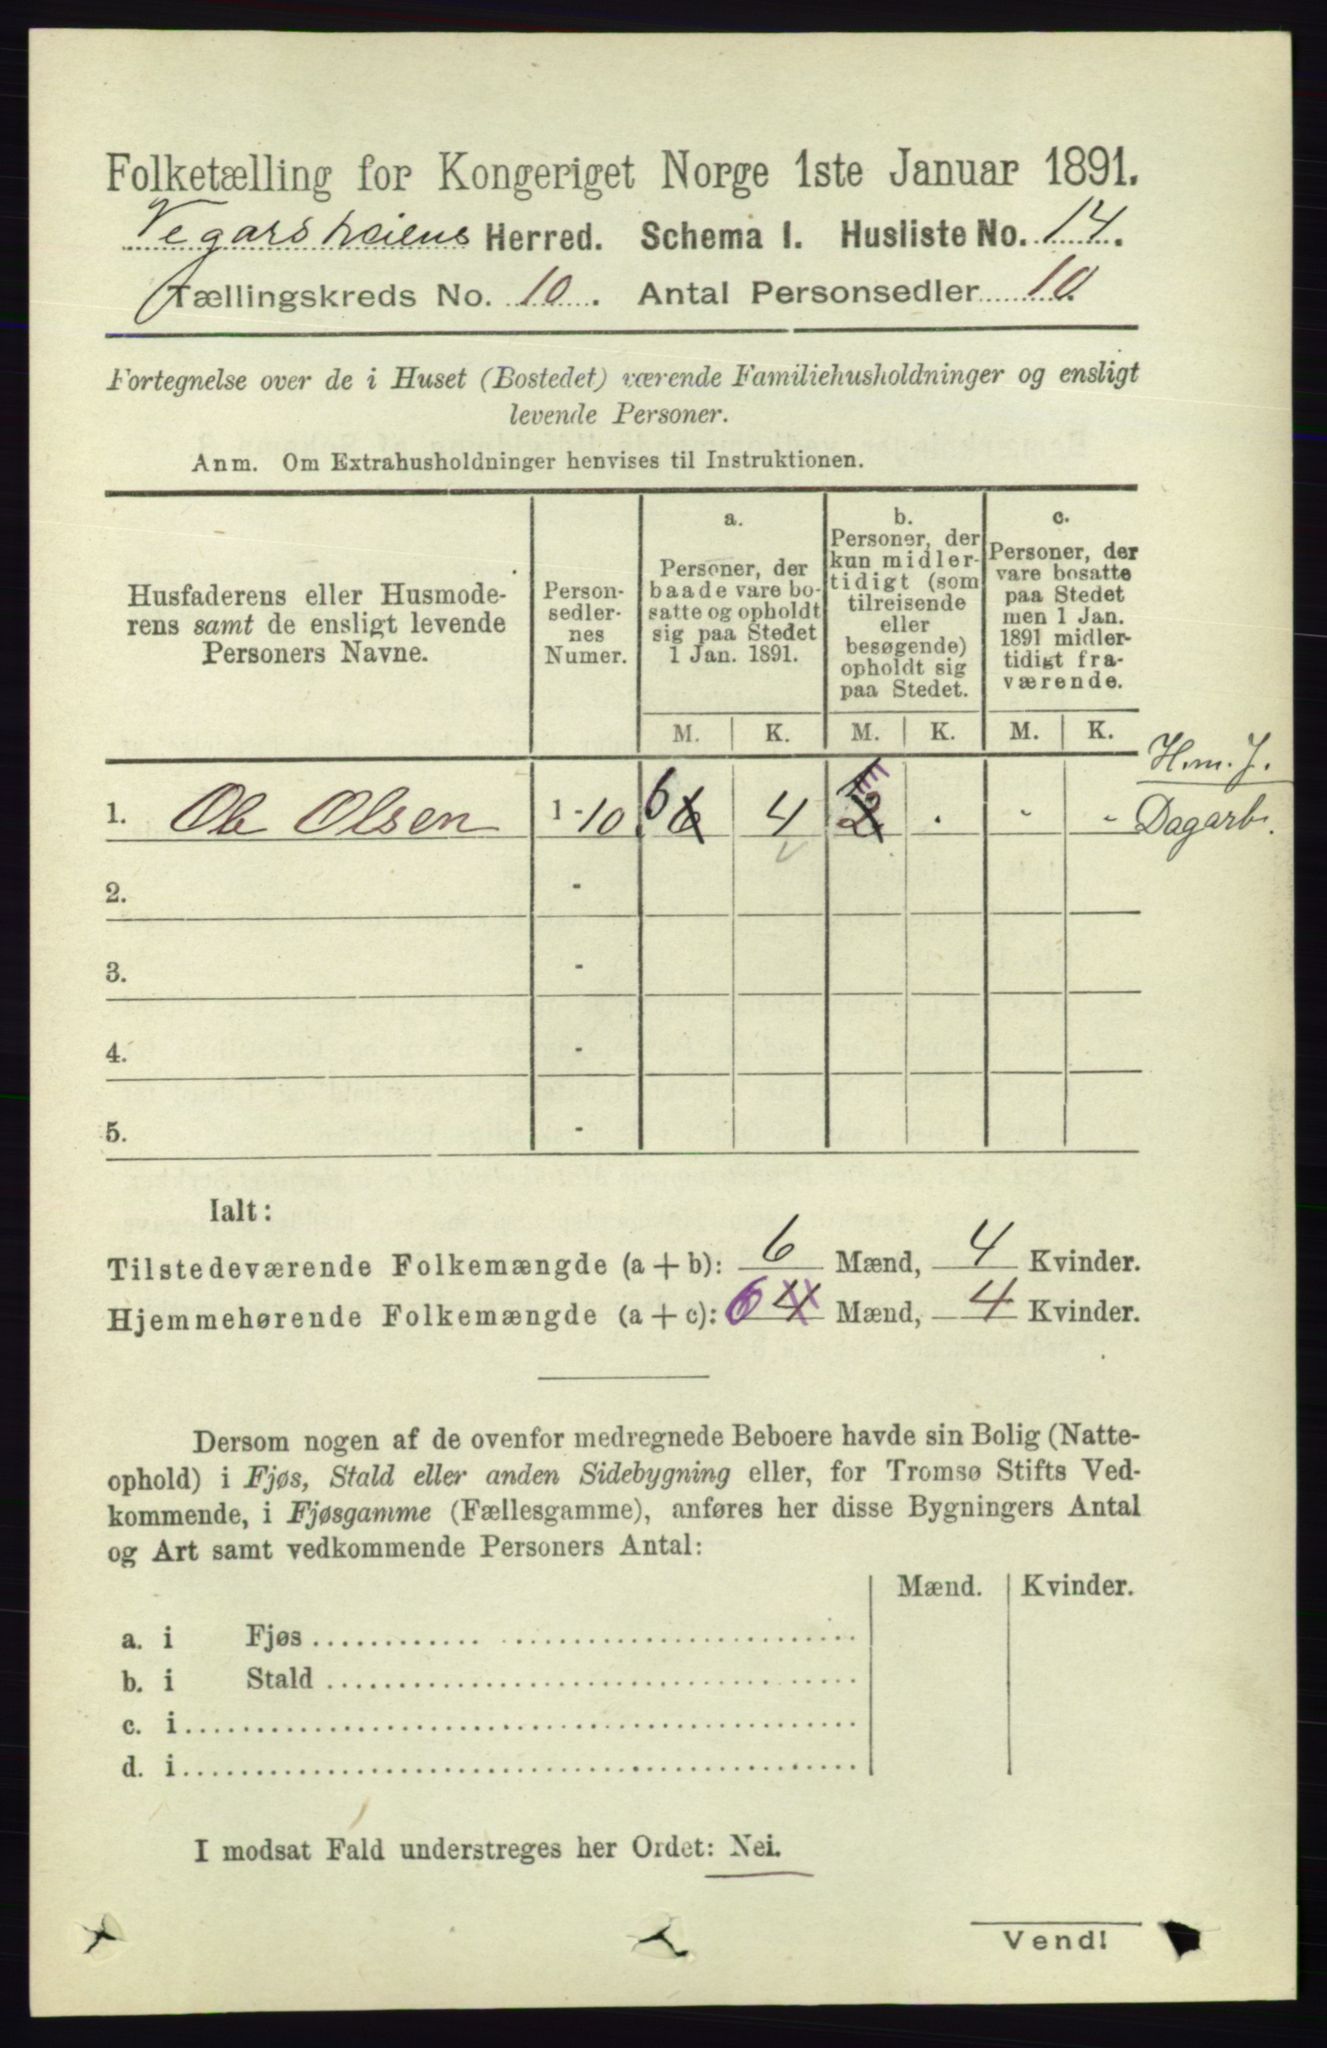 Folketælling for Kongeriget Norge 1ste Januar 1891.
Vegarsheiens Herred. Schema I. Husliste No. 14.
Tællingskreds No. 10. Antal Personsedler 10.
Fortegnelse over de i Huset (Bostedet) værende Familiehusholdninger og ensligt
levende Personer.
Anm. Om Extrahusholdninger henvises til Instruktionen.
Husfaderens eller Husmode-
rens samt de ensligt levende
Personers Navne.
Person-
sedler-
nes
Numer.
a.
Personer, der
baade vare bo-
satte og opholdt
sig paa Stedet
1 Jan. 1891.
b.
Personer, der
kun midler-
tidigt (som
tilreisende
eller
besøgende)
opholdt sig
paa Stedet.
c.
Personer, der
vare bosatte
paa Stedet
men 1 Jan.
1891 midler-
tidigt fra-
værende.
M. K. M. K. M. K.
H.m.J.
1. Ole Olsen 1-10 6 4 2 . - - Dagarb.
2. -
3. -
4. -
5. -
Ialt:
Tilstedeværende Folkemængde (a + b): 6 Mænd, 4 Kvinder.
Hjemmehørende Folkemængde (a + c): 6 4 Mænd, 4 Kvinder.
Dersom nogen af de ovenfor medregnede Beboere havde sin Bolig (Natte-
ophold) i Fjøs, Stald eller anden Sidebygning eller, for Tromsø Stifts Ved-
kommende, i Fjøsgamme (Fællesgamme), anføres her disse Bygningers Antal
og Art samt vedkommende Personers Antal:
Mænd. Kvinder.
a. i Fjøs
b. i Stald
c. i
d. i
I modsat Fald understreges her Ordet: Nei.
Vend!